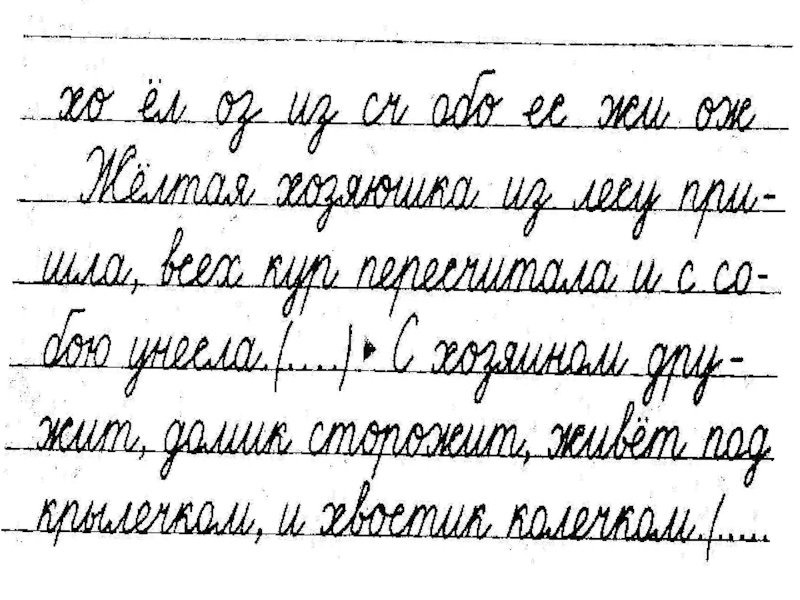 хо ёл оз из сч обо ес жи ож
Жёлтая хозяюшка из лесу при-
шла, всех кур пересчитала и с со-
бою унесла. (....) • С хозяином дру-
жит, домик сторожит, живёт под
крылечком, и хвостик колечком. (.....